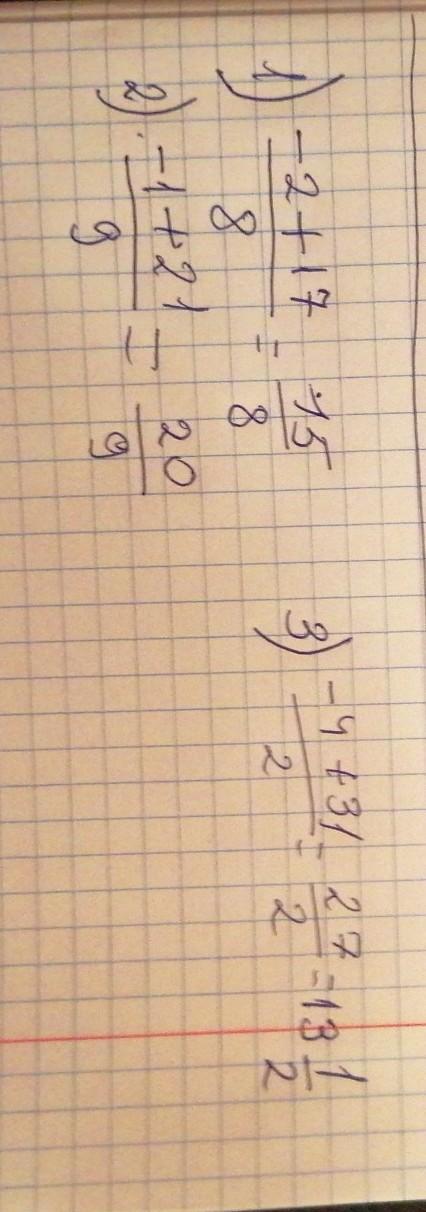 1) -2+17/8 = 15/8
2) -1+21/9 = 20/9
3) -4+31/2 = 27/2 = 13 1/2